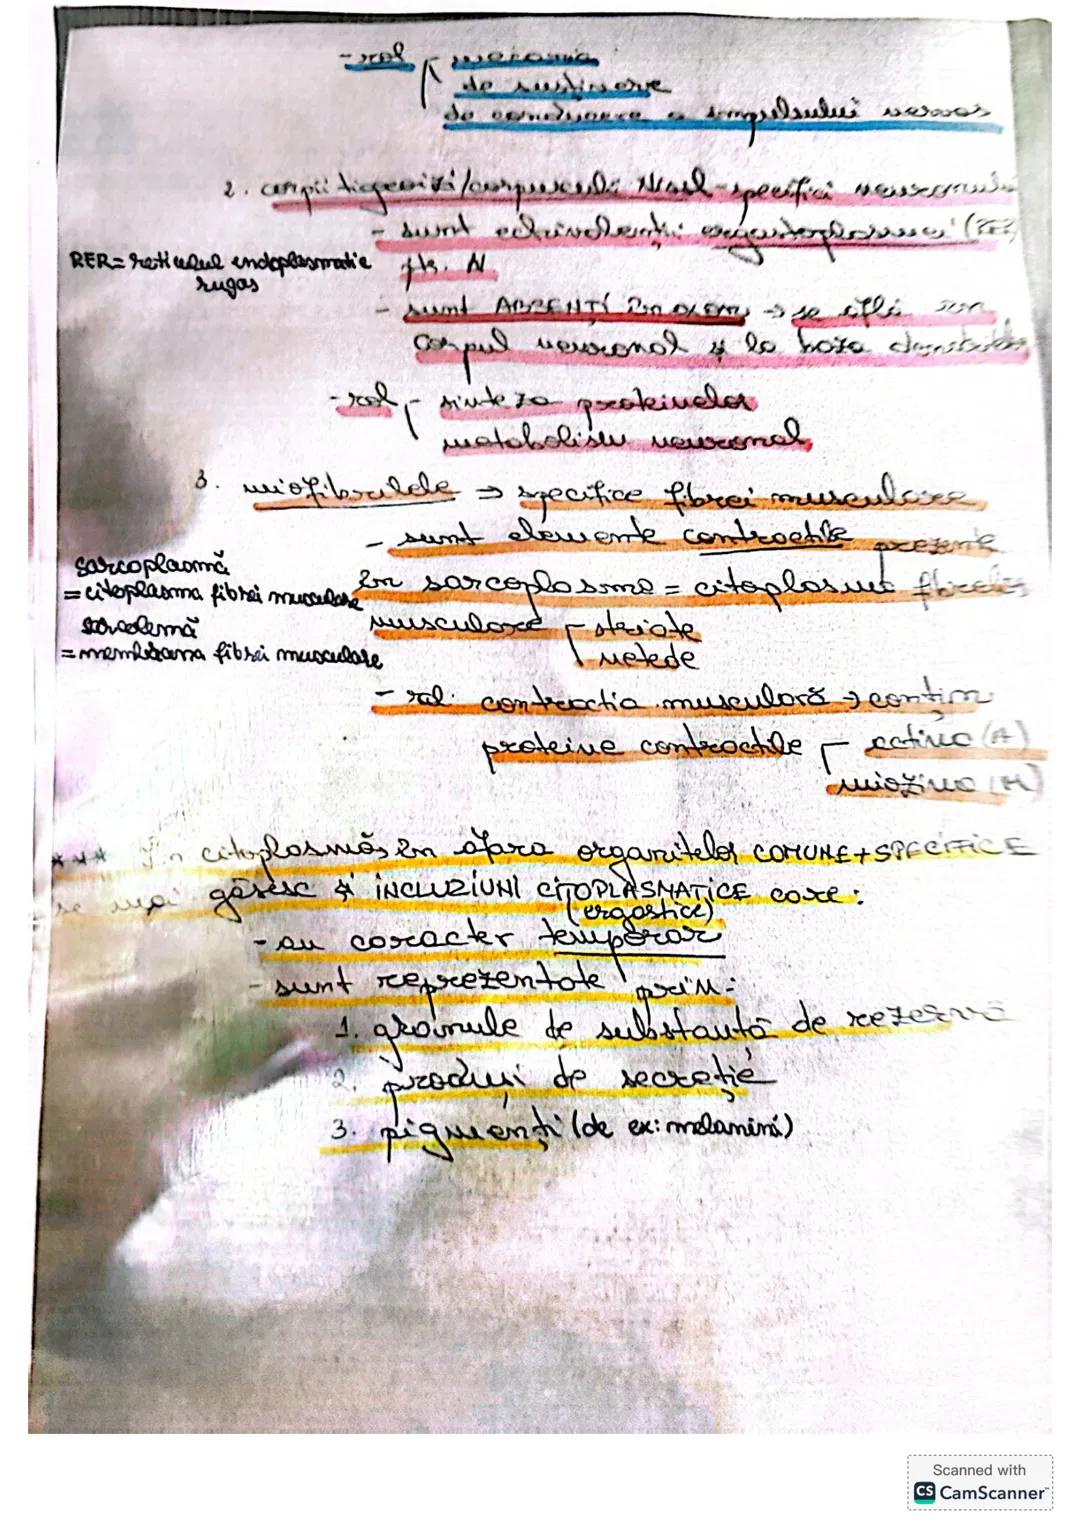 - rol mecanic
de susținere
de conducere a impulsului nervos
2. corpii tigroizi/corpusculi Nissl - specifici neuronului
- sunt echivalenții ergastoplasmei (RER)
RER = reticulul endoplasmatic
rugos
ptr. N
- sunt ABSENȚI în axon → se află în
corpul neuronal și la baza dendritelor
- rol - sinteza proteinelor
metabolism neuronal
3. miofibrilele → specifice fibrei musculare
- sunt elemente contractile prezente
sarcoplasmă
= citoplasma fibrei musculare
în sarcoplasma = citoplasma fibrelor
sarcolemă
musculare striate
= membrana fibrei musculare
netede
- rol: contractia musculară → conțin
proteine contractile actina (A)
miozina (M)
*** În citoplasmă, în afara organitelor COMUNE + SPECIFICE
se mai găsesc și INCLUZIUNI CITOPLASMATICE care:
(ergastice)
- au caracter temporar
- sunt reprezentate prin:
1. granule de substanță de rezervă
2. produși de secreție
3. pigmenți (de ex: melanină)
Scanned with
CS CamScanner